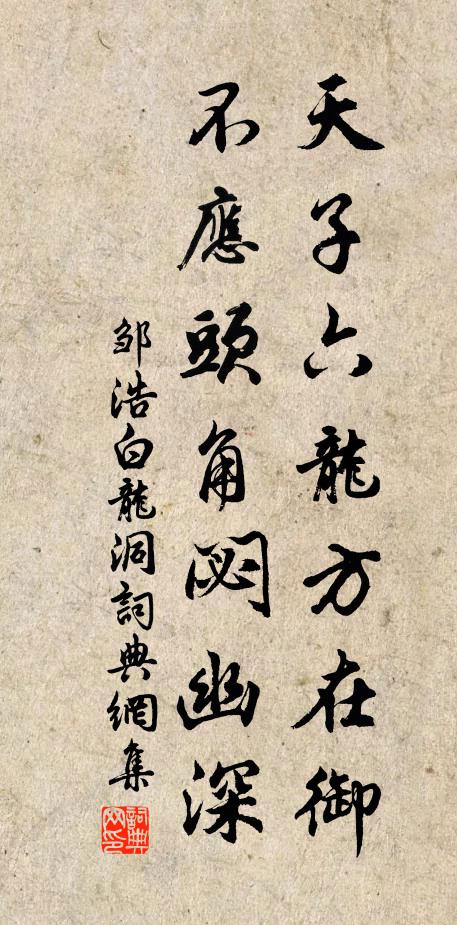 天子六龍方在御
不應頭角閟幽深
邹浩白龍洞詞典網集
詞典網印